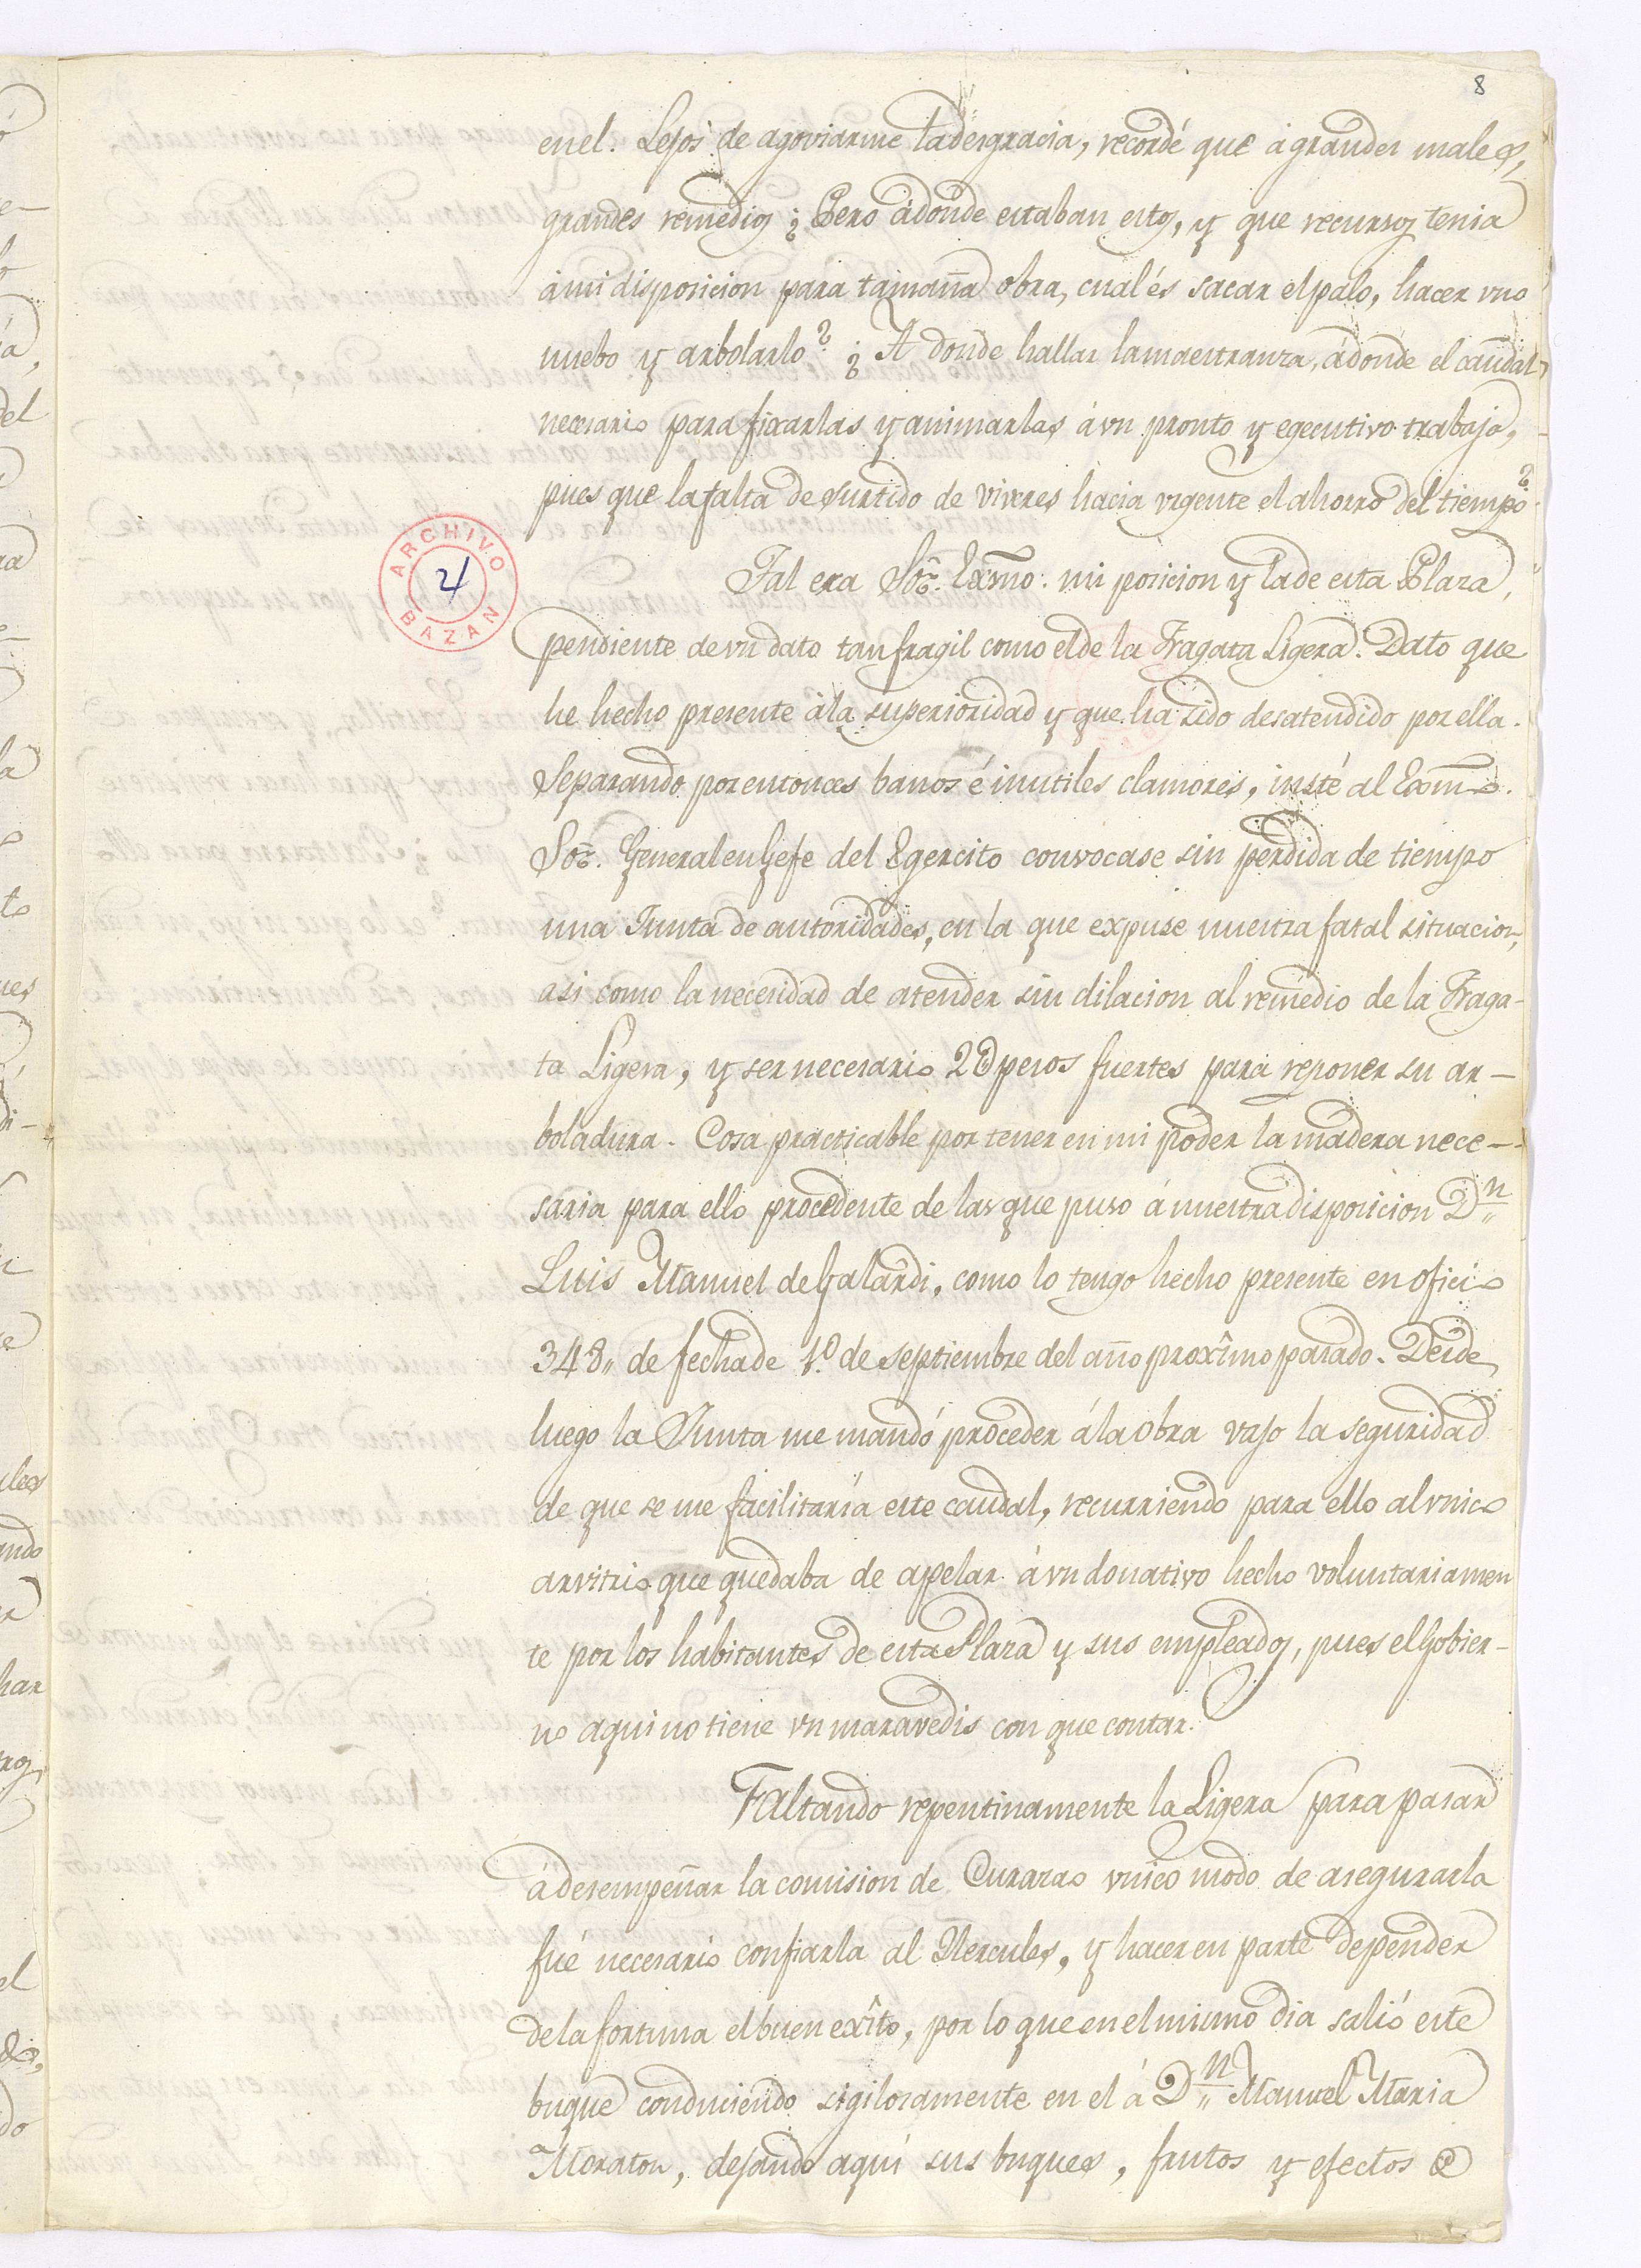 8
en el. Lejos de agoviarme la desgracia, recordé que a grandes males,
grandes remedios ¿ Pero ádonde estaban estos, y que recursos tenia
á mi disposicion para tamaña obra, cual és sacar el palo, hacer vno
nuebo y arbolarlo? ¿ A donde hallar la maestranza, ádonde el caudal
necesario para fixarlas y animarlas á vn pronto y egecutivo trabajo,
pues que la falta de surtido de viveres hacia vrgente el ahorro del tiempo?
Tal era Sor. Exsmo. mi posicion y la de esta Plaza,
pendiente de vn dato tan fragil como el de la Fragata Ligera. Dato que
he hecho presente á la superioridad y que ha sido desatendido por ella.
Separando por entonces banos é inutiles clamores, insté al Exmo.
Sor. General en Gefe del Egercito convocase sin perdida de tiempo
una Junta de autoridades, en la que expuse nuestra fatal situacion,
asi como la necesidad de atender sin dilacion al remedio de la Fraga-
ta Ligera, y ser necesario 2D pesos fuertes para reponer su ar-
boladura. Cosa practicable por tener en mi poder la madera nece-
saria para ello procedente de las que puso á nuestra disposicion Dn
Luis Manuel de Galardi, como lo tengo hecho presente en oficio
348,, de fecha de 1.º de septiembre del año proxîmo pasado. Desde
luego la Junta me mandó proceder á la obra vajo la seguridad
de que se me facilitaría este caudal, recurriendo para ello al vnico
arvitrio que quedaba de apelar á vn donativo hecho voluntariamen
te por los habitantes de esta Plaza y sus empleados, pues el Gobier-
no aqui no tiene vn maravedis con que contar.
Faltando repentinamente la Ligera para pasar
á desempeñar la comision de Curazao vnico modo de asegurarla
fué necesario confiarla al Hercules, y hacer en parte depender
de la fortuna el buen exîto, por lo que en el mismo dia salió este
buque conduciendo sigilosamente en el á Dn Manuel Maria
Moraton, dejando aquí sus buques, frutos y efectos @
ARCHIVO
21
BAZAN